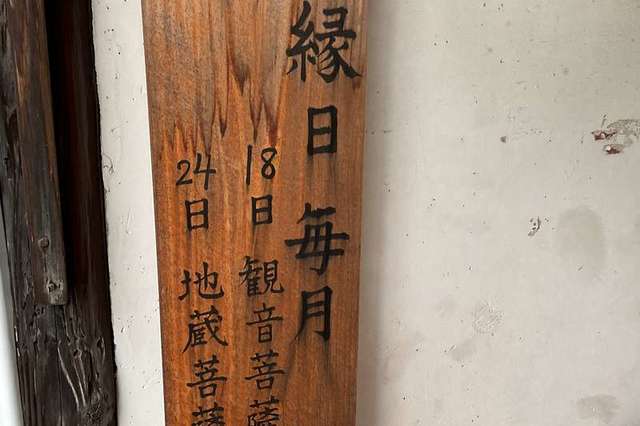 縁日 毎月
18日 観音菩薩
24日 地蔵菩薩